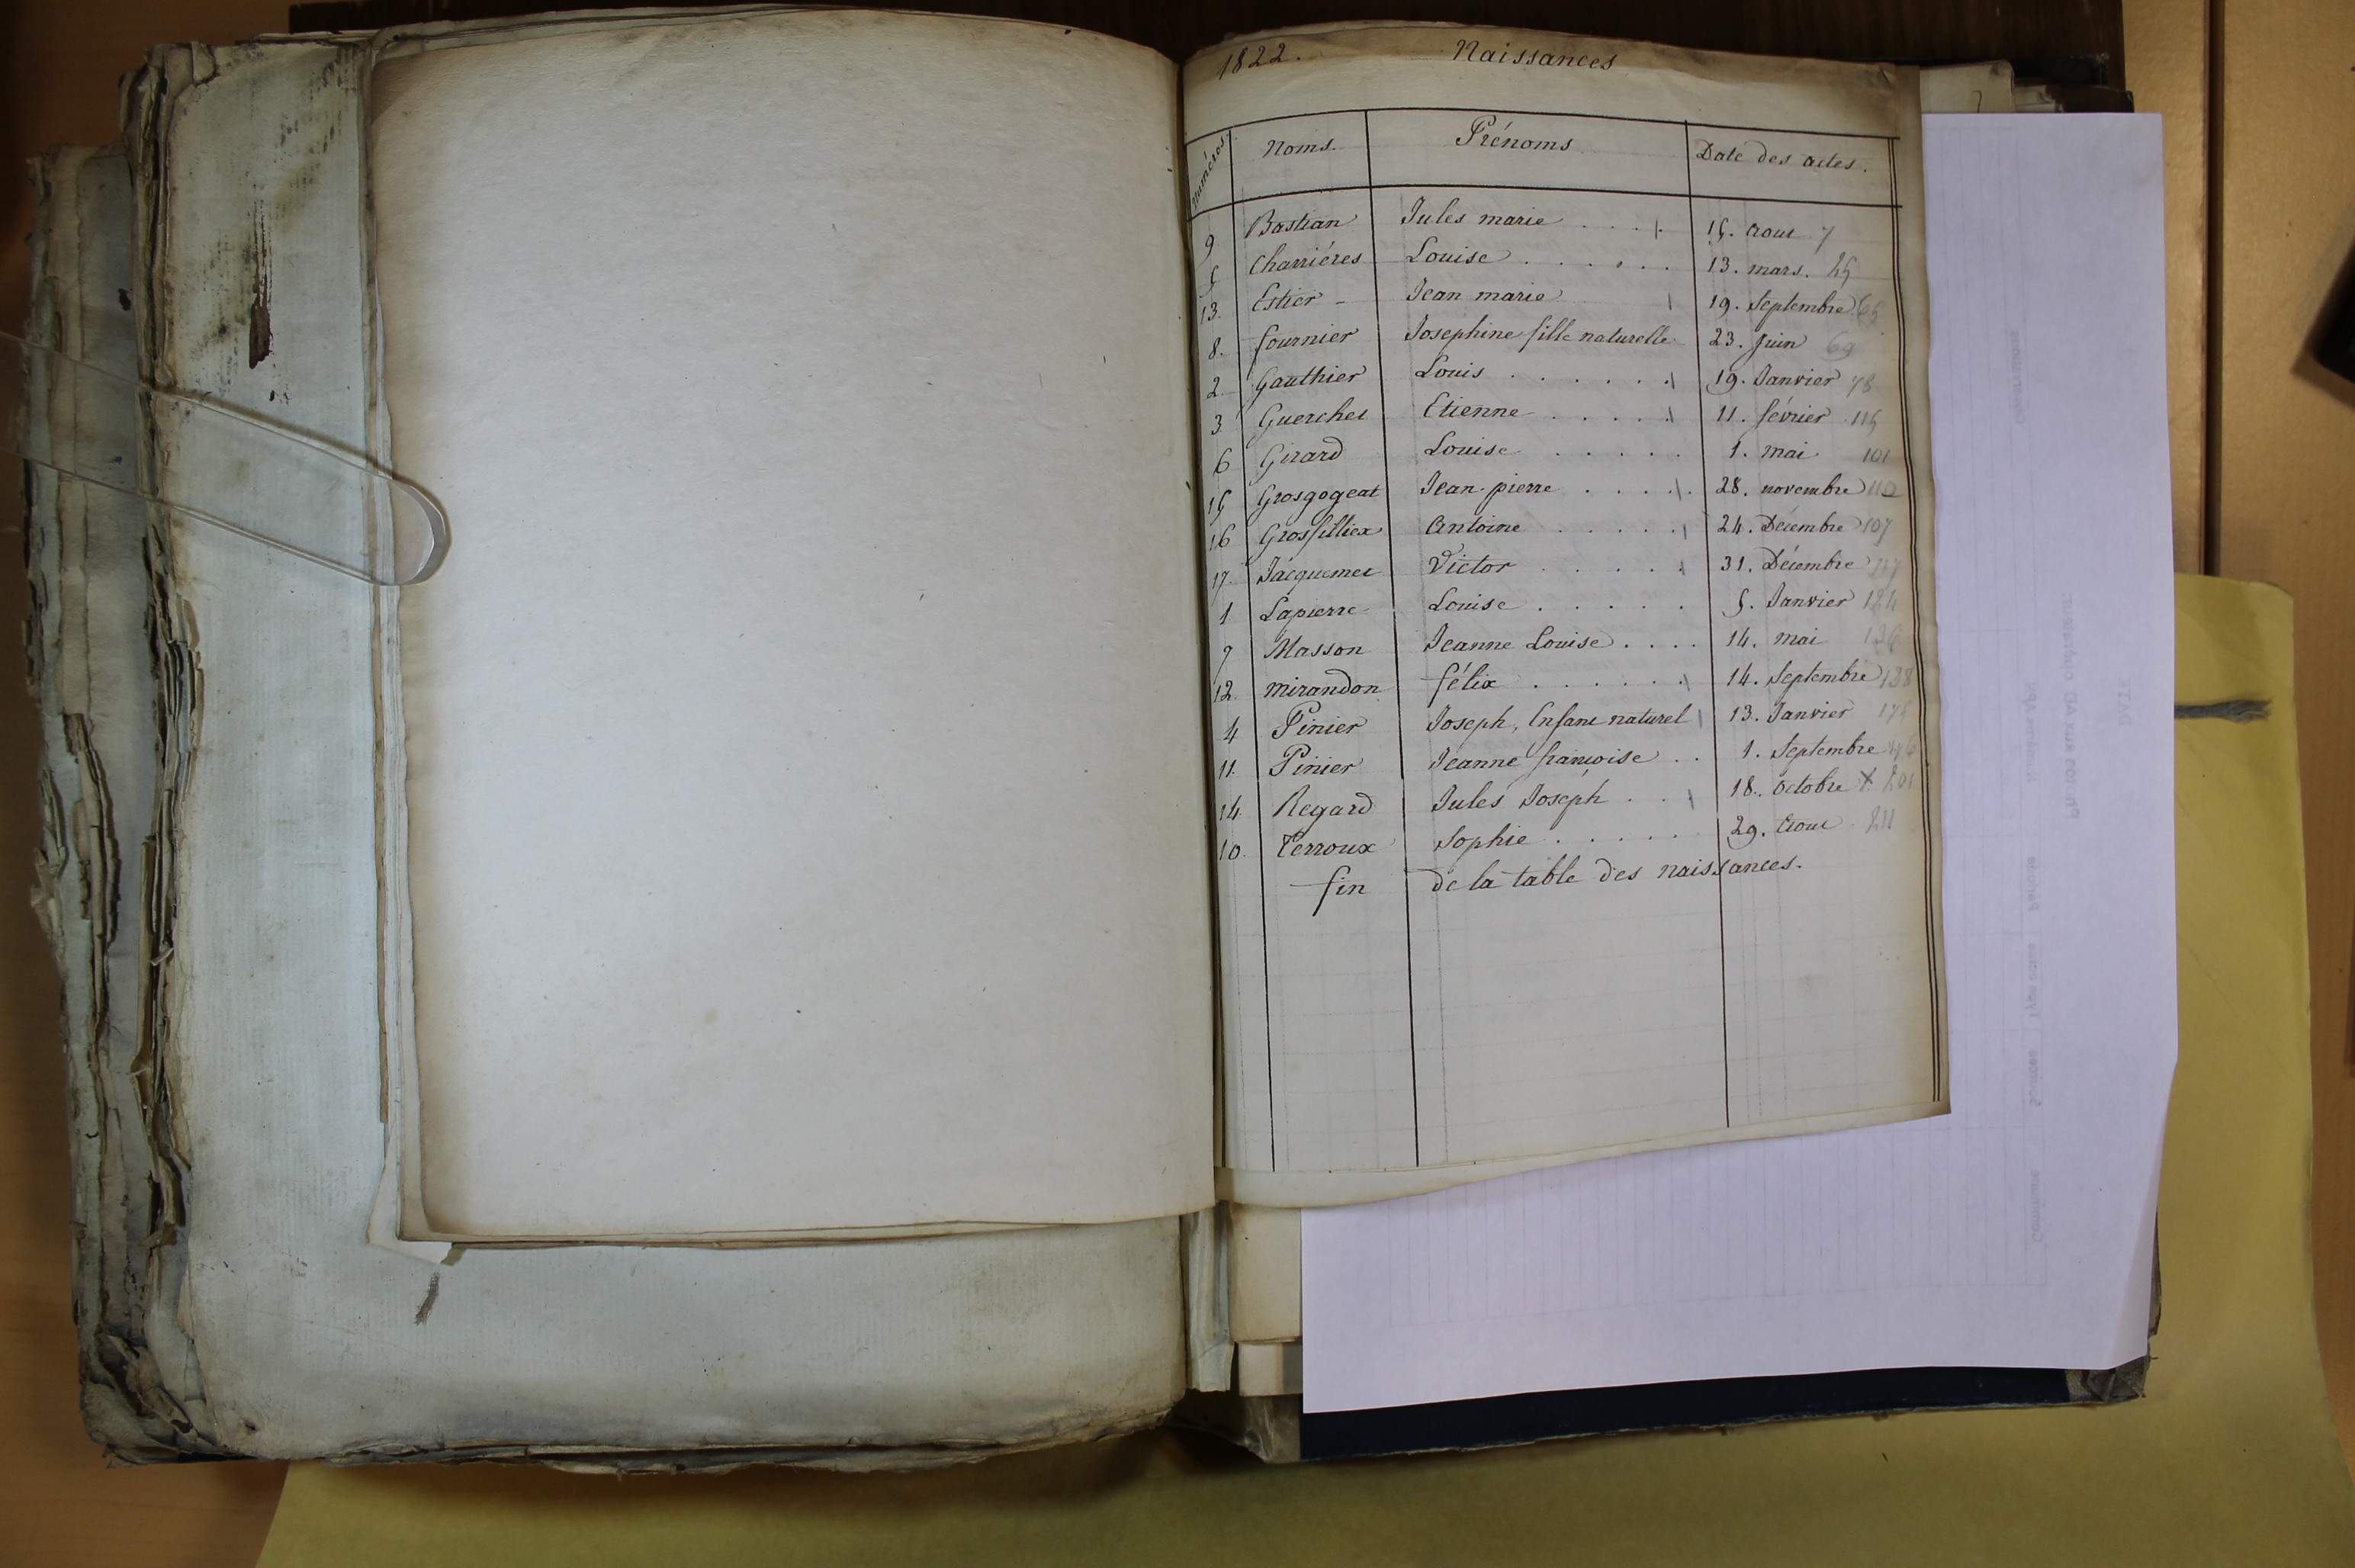 1822. Naissances
Numéros Noms. Prénoms Date des actes.
9 Bastian Jules marie . . . . 15. Aout 7
5 Charriéres Louise . . . . . . 13. mars. 25
13. Estier - Jean marie 19. Septembre 65
8. fournier Josephine fille naturelle 23. Juin 69
2. Gauthier Louis . . . . . . 19. Janvier 78
3 Guerchet Etienne . . . . . 11. février 115
6 Girard Louise . . . . . 1. mai 101
15 Grosgogeat Jean-pierre . . . . . 28. novembre 112
16 Grosfilliex Antoine . . . . . 24. Décembre 107
17. Jacquemet Victor . . . . . 31. Décembre
1 Lapierre Louise . . . . . 5. Janvier 124
7 Masson Jeanne Louise . . . . 14. mai
12. mirandon félix . . . . . . 14. Septembre 138
4 Pinier Joseph, Enfant naturel 13. Janvier
11. Pinier Jeanne françoise . . 1. Septembre
14. Regard Jules Joseph . . 18. Octobre X 201
10. Terroux Sophie . . . . . 29. Aout 211
fin de la table des naissances.